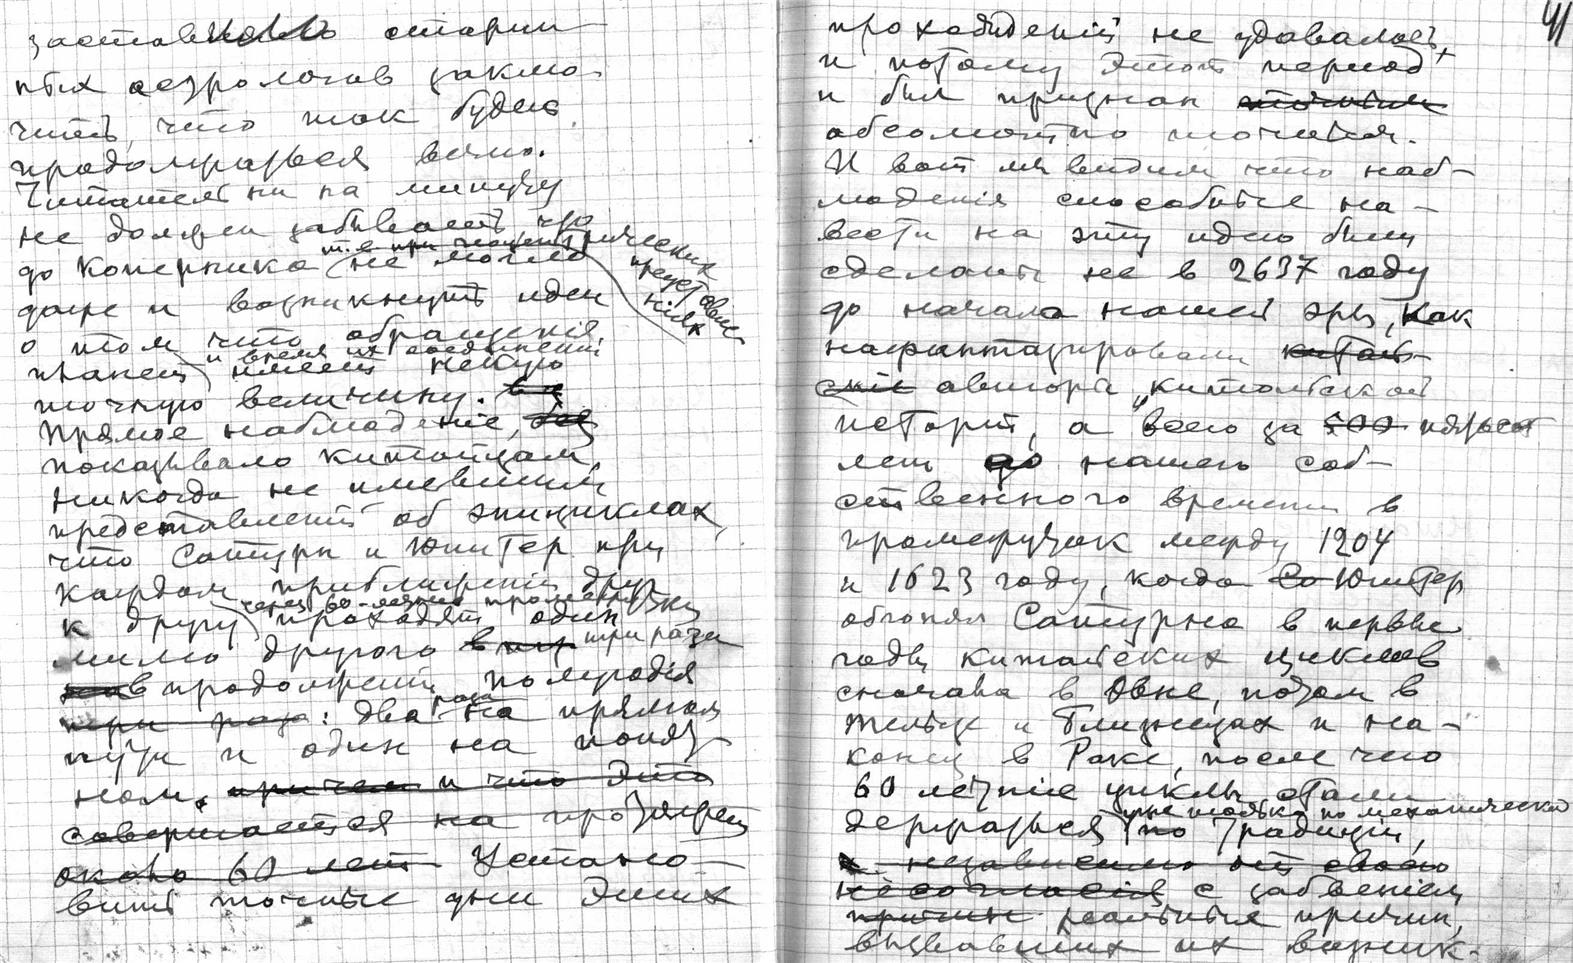 заставило старин
ных астрологов заклю
чить, что так будет
продолжаться вечно.
Читатель ни на минуту
не должен забывать что
т. е. при геоцентрических представлениях
до Коперника не могло
даже и возникнуть идеи
о том что обращения
и время их соединений
планет имеют некую
точную величину.
Прямое наблюденiе,
показывало китайцам,
никогда не имевшим
представленiй об эпициклах,
что Сатурн и Юпитер при
каждом приближенiи друг
через 60-летние промежутки
к другу проходят один
мимо другого три раза
в продолженiи полугодiя
: два раза на прямом
пути и один на попят
ном. причем и что это
совершается на протяжении
около 60 лет Устано-
вить точные дни этих
41
прохождений не удавалось,
и потому этот период
и был признан точным
абсолютно точным.
И вот мы видим что наб-
людения способные на-
вести на эту идею были
сделаны не в 2637 году
до начала нашей эры, как
нафантазировали китай-
ские автора „китайской
истории, а всего за 500 пятьсот
лет до нашего соб-
ственного времени в
промежуток между 1204
и 1623 году, когда Юпитер
обгонял Сатурна в первые
годы китайских циклов
сначала в Овне, потом в
Тельце и Близнецах и на-
конец в Раке, после чего
60 летнiе циклы стали
уже только по механической
держаться по традиции,
независимо от своего
несогласия с забвенiем
причин реальных причин,
вызвавших их возник-